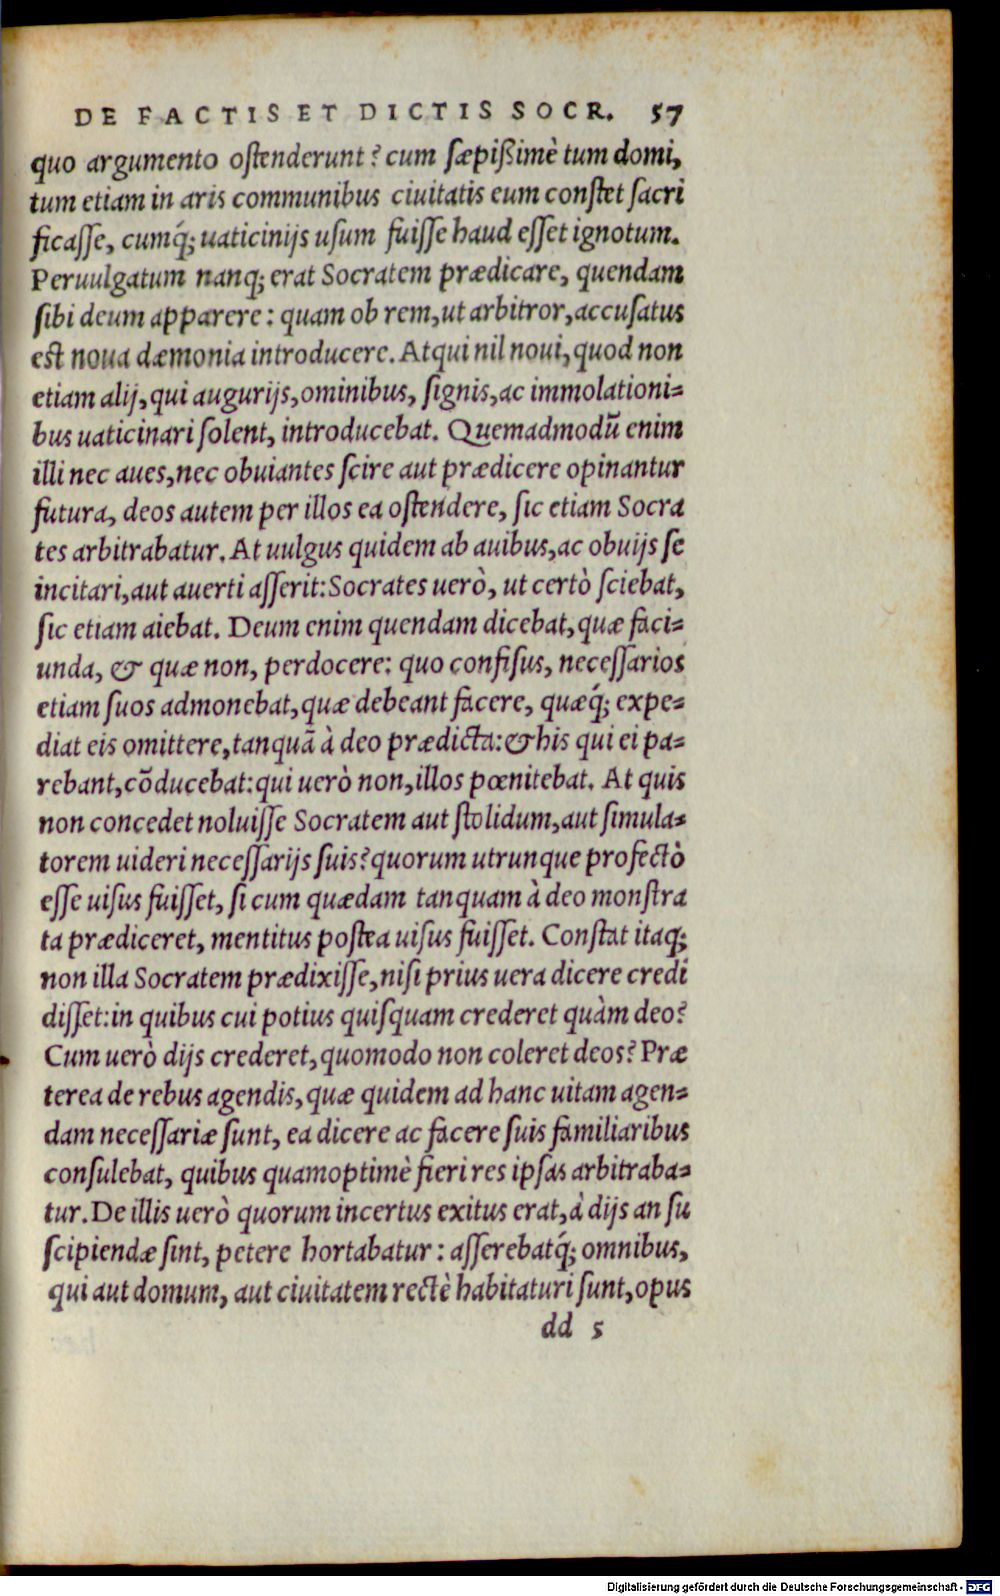 DE FACTIS ET DICTIS SOCR. 57
quo argumento ostenderunt? cum sæpißimè tum domi,
tum etiam in aris communibus ciuitatis eum constet sacri
ficasse, cumq́; uaticinijs usum fuisse haud esset ignotum.
Peruulgatum nanq; erat Socratem prædicare, quendam
sibi deum apparere: quam ob rem, ut arbitror, accusatus
est noua dæmonia introducere. Atqui nil noui, quod non
etiam alij, qui augurijs, ominibus, signis, ac immolationi=
bus uaticinari solent, introducebat. Quemadmodũ enim
illi nec aues, nec obuiantes scire aut prædicere opinantur
futura, deos autem per illos ea ostendere, sic etiam Socra
tes arbitrabatur. At uulgus quidem ab auibus, ac obuijs se
incitari, aut auerti asserit: Socrates uerò, ut certò sciebat,
sic etiam aiebat. Deum enim quendam dicebat, quæ faci=
unda, & quæ non, perdocere: quo confisus, necessarios
etiam suos admonebat, quæ debeant facere, quæq́; expe=
diat eis omittere, tanquã à deo prædicta: & his qui ei pa=
rebant, cõducebat: qui uerò non, illos pœnitebat. At quis
non concedet noluisse Socratem aut stolidum, aut simula=
torem uideri necessarijs suis? quorum utrunque profectò
esse uisus fuisset, si cum quædam tanquam à deo monstra
ta prædiceret, mentitus postea uisus fuisset. Constat itaq;
non illa Socratem prædixisse, nisi prius uera dicere credi
disset: in quibus cui potius quisquam crederet quàm deo?
Cum uerò dijs crederet, quomodo non coleret deos? Præ
terea de rebus agendis, quæ quidem ad hanc uitam agen=
dam necessariæ sunt, ea dicere ac facere suis familiaribus
consulebat, quibus quamoptimè fieri res ipsas arbitraba=
tur. De illis uerò quorum incertus exitus erat, à dijs an su
scipiendæ sint, petere hortabatur: asserebatq́; omnibus,
qui aut domum, aut ciuitatem rectè habitaturi sunt, opus
dd 5
Digitalisierung gefördert durch die Deutsche Forschungsgemeinschaft - DFG